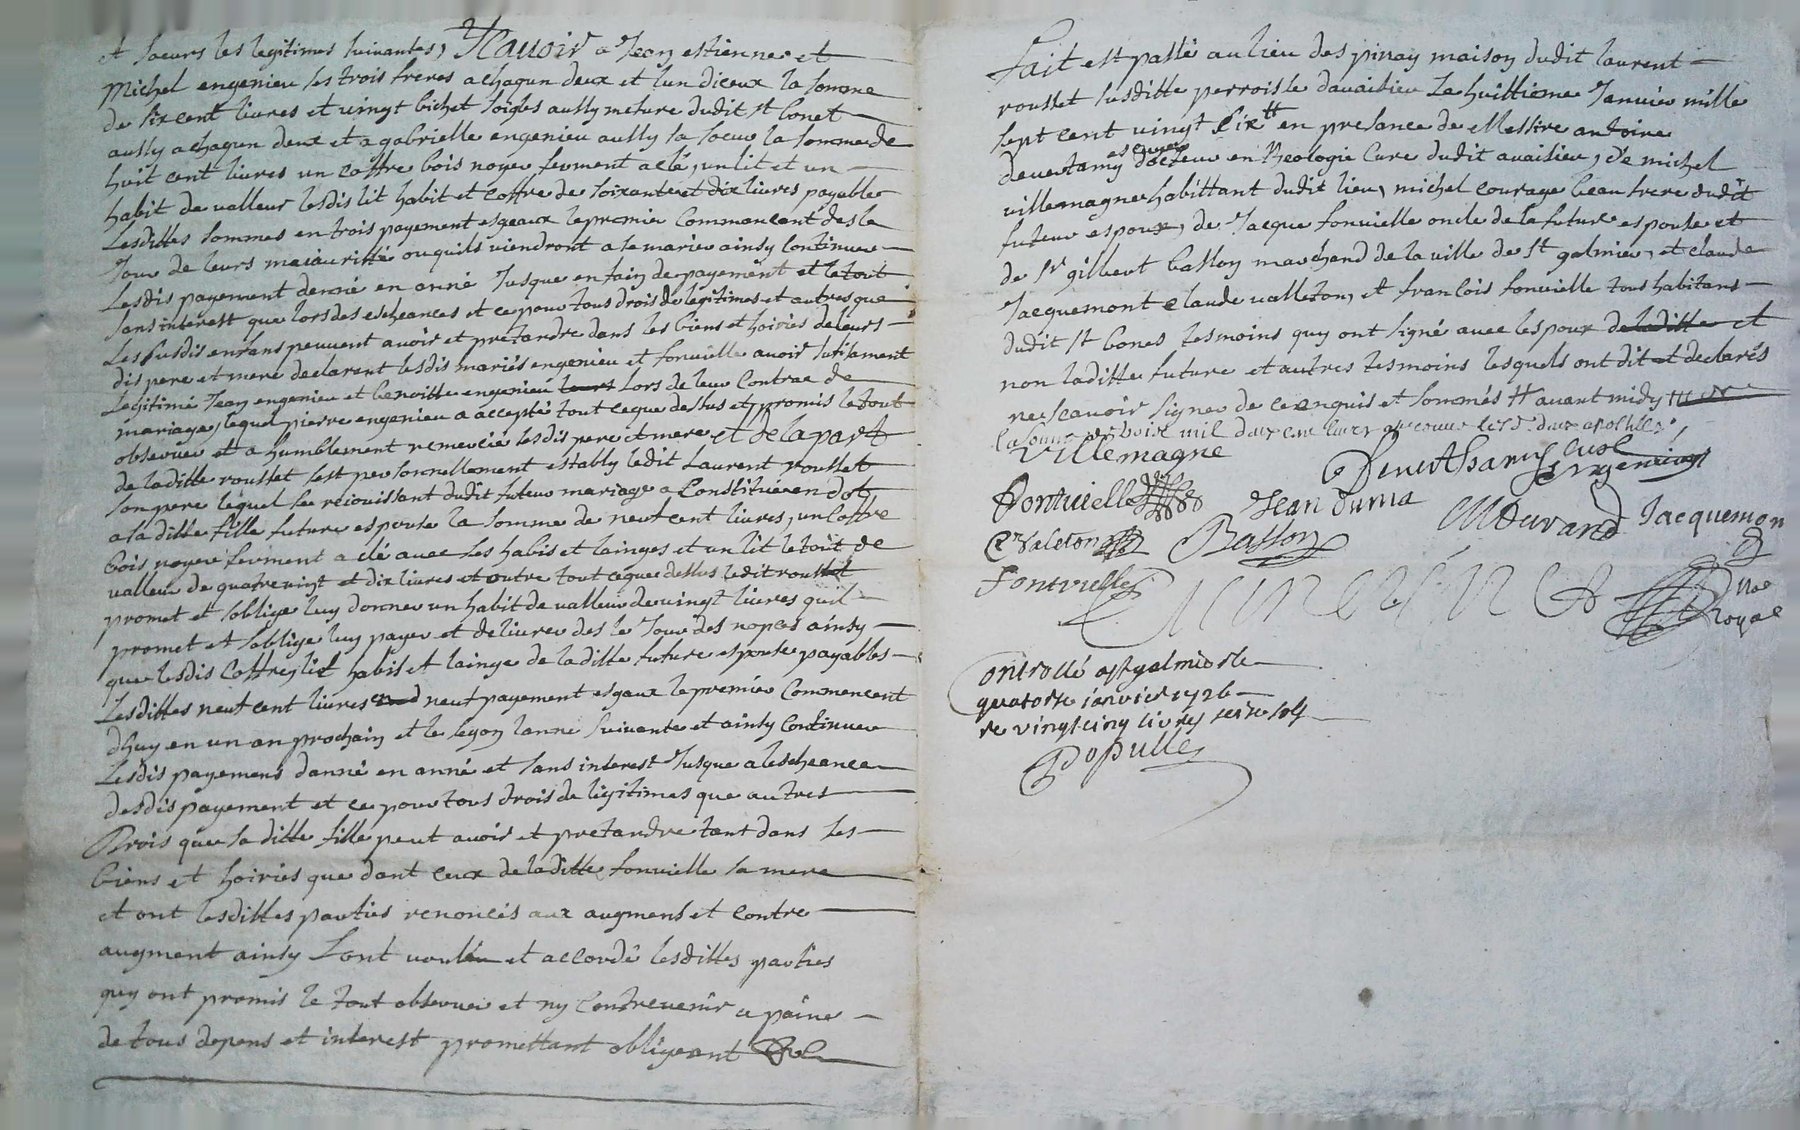 et soeurs les legitimes suivantes, Scavoir a Jean estienne et
Michel engenieu ses trois freres a chaqun deux et lun diceux la somme
de six cent livres et vingt bichet soigles aussy mesure dudit st bonet
aussy a chaqun deux et a gabrielle engenieu aussy sa soeur la somme de
huit cent livres un coffre bois noyer ferment a clé, un lit et un
habit de valleur lesdis lit habit et coffre de soixante et dix livres payable
Lesdittes sommes en trois payement esgeaux le premier Commancent des le
Jour de leurs maiauritté ou quils viendront a se marier ainsy continuer
Lesdis payement danné en anné Jusque en fain de payement et le tout
sans interest que lors des escheances et ce pour tous drois de legitimes et autres que
Les susdis enfans peuvent avoir et pretandre dans les biens et hoiries de leurs
dis pere et mere declarent lesdis mariés engenieu et fonvielle avoir sufisament
Legitimé Jean engenieu et benoitte engenieu lors de leur Contrac de
mariage, lequel pierre engenieu a accepté tout ce que dessus et promis le tout
observer et a humblement remercié lesdis pere et mere et de la part
de laditte rousset sest personnellement estably ledit Laurent rousset
son pere lequel se rejouissant dudit futeur mariage a Constitué en dot
a sa ditte fille future espouse la somme de neuf cent livres, un coffre
bois noyer ferment a clé avec ses habis et lainges et un lit le tout de
valleur de quatre vingt et dix livres et outre tout ce que dessus ledit rousset
promet et soblige luy donner un habit de valleur de vingt livres quil
promet et soblige luy payer et delivrer des le Jour des nopces ainsy
que lesdis coffre, lit habis et lainge de laditte future espouse payables
Lesdittes neuf cent livres en neuf payement esgaux le premier Commencent
dhuy en un an prochain et le segon lanné suivante et ainsy Continuer
Lesdis payemens danné en anné et sans interest Jusque a lescheance
desdis payement et ce pour tous drois de ligitimes que autres
Drois que sa ditte fille peut avoir et pretandre tant dans ses
biens et hoiries que dant ceux de laditte fonvielle sa mere
et ont lesdittes parties renoncés aux augment et contre
augment ainsy Lont voulu et accordé lesdittes parties
quy ont promis le tout observer et ny Contrevenir a paine
de tous depens et interest promettant obligeant &c
Fait est passé au lieu des pinay maison dudit laurent
rousset susditte perroisse davaisieu Le huittieme Janvier mille
sept cent vingt six tt en presance de Messire antoine
escuyer
docteur en theologie Curé dudit avaisieu, de michel
villemagne habittant dudit lieu, michel courage beau frere dudit
futeur espoux, de Jacque fonvielle oncle de la future espouse et
de sr gilbert basson marchand de la ville de st galmier, et claude
Jacquemont Claude valleton, et francois fonvielle tous habitans
dudit st bones tesmoins quy ont signé avec lespoux de laditte et
non laditte future et autres tesmoins lesquels ont dit et declarés
ne scavoir signer de ce enquis et sommés tt avant midy
la somme de trois mil deux cent livres
Villemagne
Curé
Engenieu
Fontvielle
Jean duma
MDurand
Jacquemon
C Valeton
Basson
Fontvielle
Nre
Royal
Controllé a st galmier le
quatorze janvier 1726
re vingt cinq livres seize sols
Populle